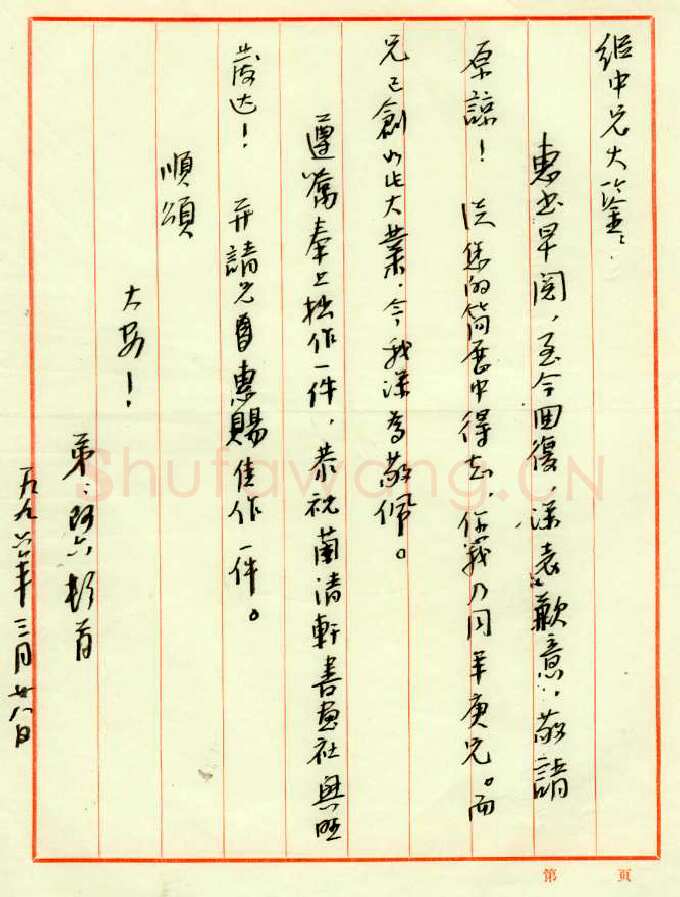 继中兄大鉴：
惠书早阅，至今回復，深表歉意，敬請
原諒！从您的简歷中得志，你我乃同年庚兄。而
兄已創如此大業，令我深为敬佩。
遵嘱奉上拙作一件，恭祝蘭清軒書画社興旺
发达！並請兄惠賜佳作一件。
順頌
大安！
弟：阿六頓首
一九九六年三月廿八日
Shufawang.CN
第 页